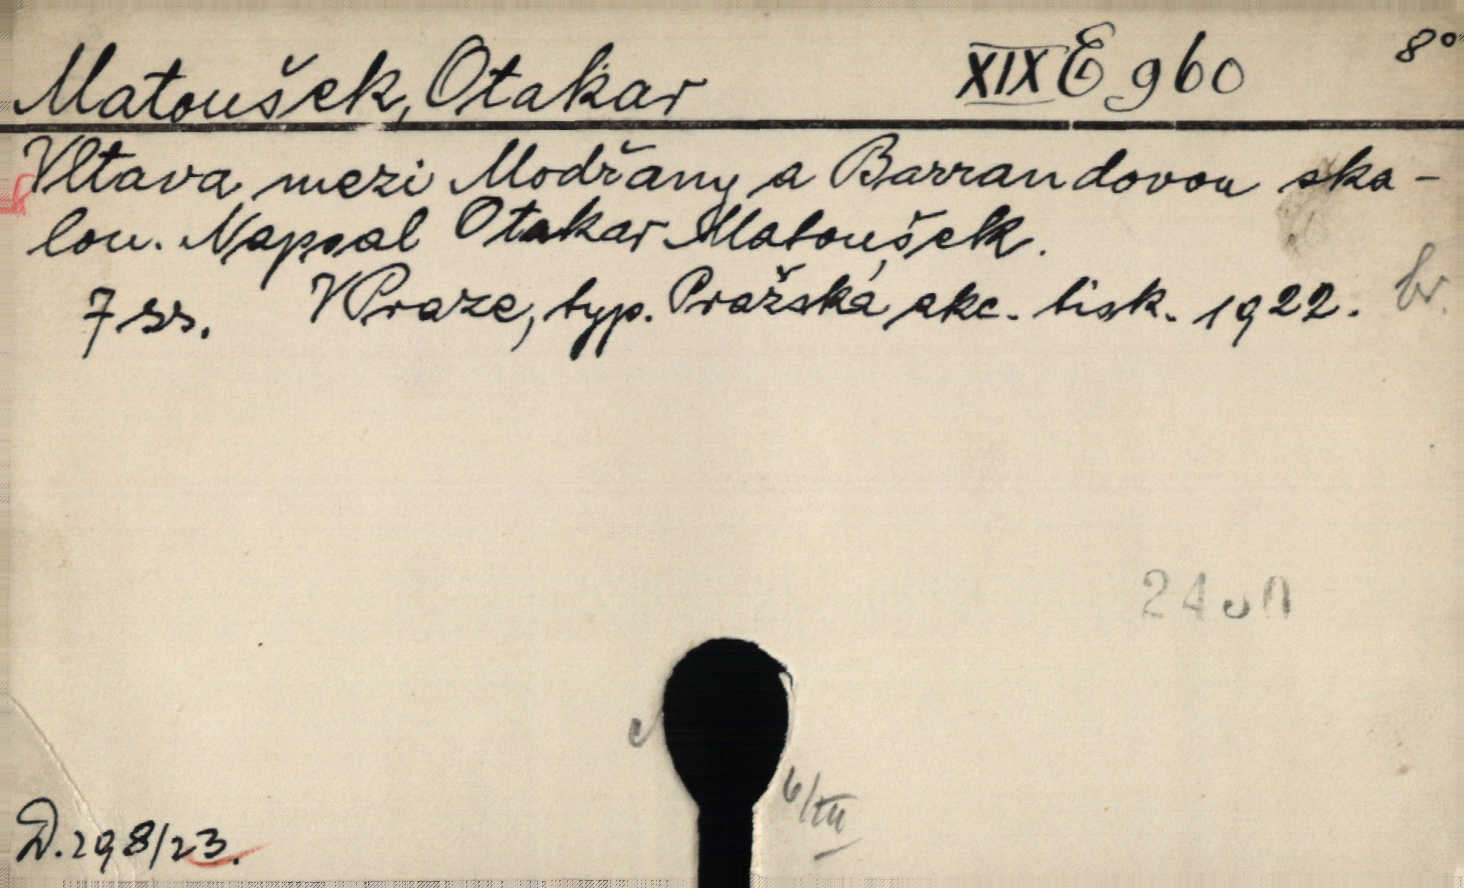 Matoušek, Otakar XIX E 960 8°
Vltava mezi Modřany a Barrandovou ska-
lou. Napsal Otakar Matoušek.
7 ss. V Praze, typ. Pražská akc. tisk. 1922. br.
6/VII
D. 298/23.